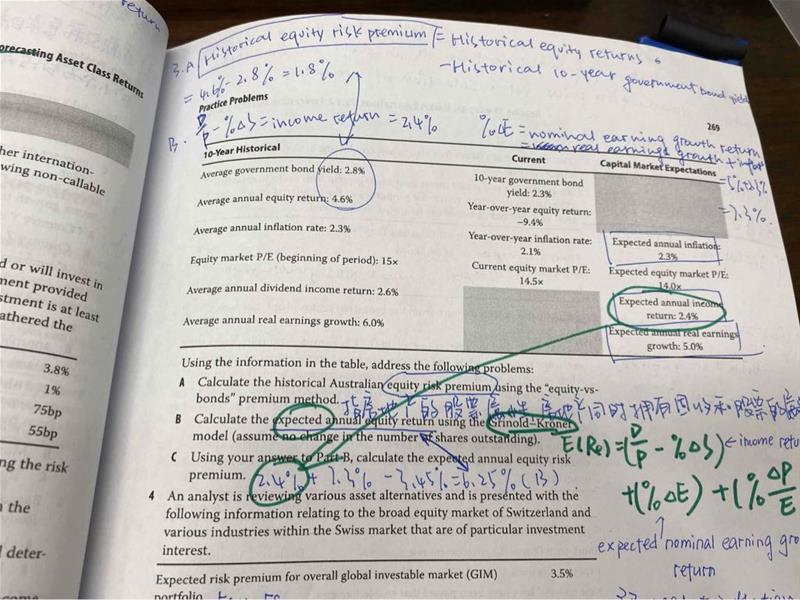 return
orecasting Asset Class Returns
her internation-
wing non-callable
d or will invest in
ment provided
stment is at least
athered the
3.8%
1%
75bp
55bp
ng the risk
n the
l deter-
3.A Historical equity risk premium = Historical equity returns
- Historical 10-year government bond yield
= 4.6% - 2.8% = 1.8%
Practice Problems
269
B. D/P - %ΔS = income return = 2.4%
%ΔE = nominal earning growth return
= real earnings growth + infla
= 5% + 2.3%
= 7.3%
10-Year Historical
Current
Capital Market Expectations
Average government bond yield: 2.8%
10-year government bond
yield: 2.3%
Average annual equity return: 4.6%
Year-over-year equity return:
−9.4%
Average annual inflation rate: 2.3%
Year-over-year inflation rate:
2.1%
Expected annual inflation:
2.3%
Equity market P/E (beginning of period): 15×
Current equity market P/E:
14.5×
Expected equity market P/E:
14.0×
Average annual dividend income return: 2.6%
Expected annual income
return: 2.4%
Average annual real earnings growth: 6.0%
Expected annual real earnings
growth: 5.0%
Using the information in the table, address the following problems:
A Calculate the historical Australian equity risk premium using the "equity-vs-
bonds" premium method.
B Calculate the expected annual equity return using the Grinold–Kroner
model (assume no change in the number of shares outstanding).
E(Re) = (D/P - %ΔS) ← income retu
C Using your answer to Part B, calculate the expected annual equity risk
premium.
2.4% + 7.3% - 3.45% = 6.25% (B)
+(%ΔE) + (%ΔP/E
4 An analyst is reviewing various asset alternatives and is presented with the
following information relating to the broad equity market of Switzerland and
various industries within the Swiss market that are of particular investment
interest.
expected nominal earning gro
return
Expected risk premium for overall global investable market (GIM)
3.5%
portfolio